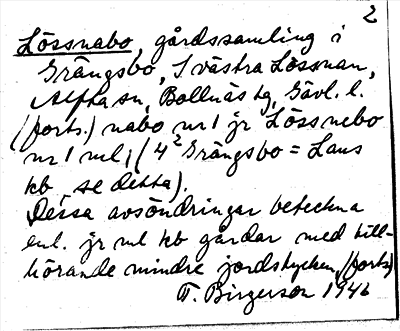 2
Lössnabo, gårdssamling i
Grängsbo, I västra Lössnan,
Alfta sn, Bollnäs tg, Gävl. l.
(forts.) nabo nr 1 jr Lössnebo
nr 1 ml, (4² Grängsbo = Laus
kb, se detta).
Dessa avsöndringar beteckna
enl. jr ml kb gårdar med till-
hörande mindre jordstycken (forts)
T. Birgerson 1946